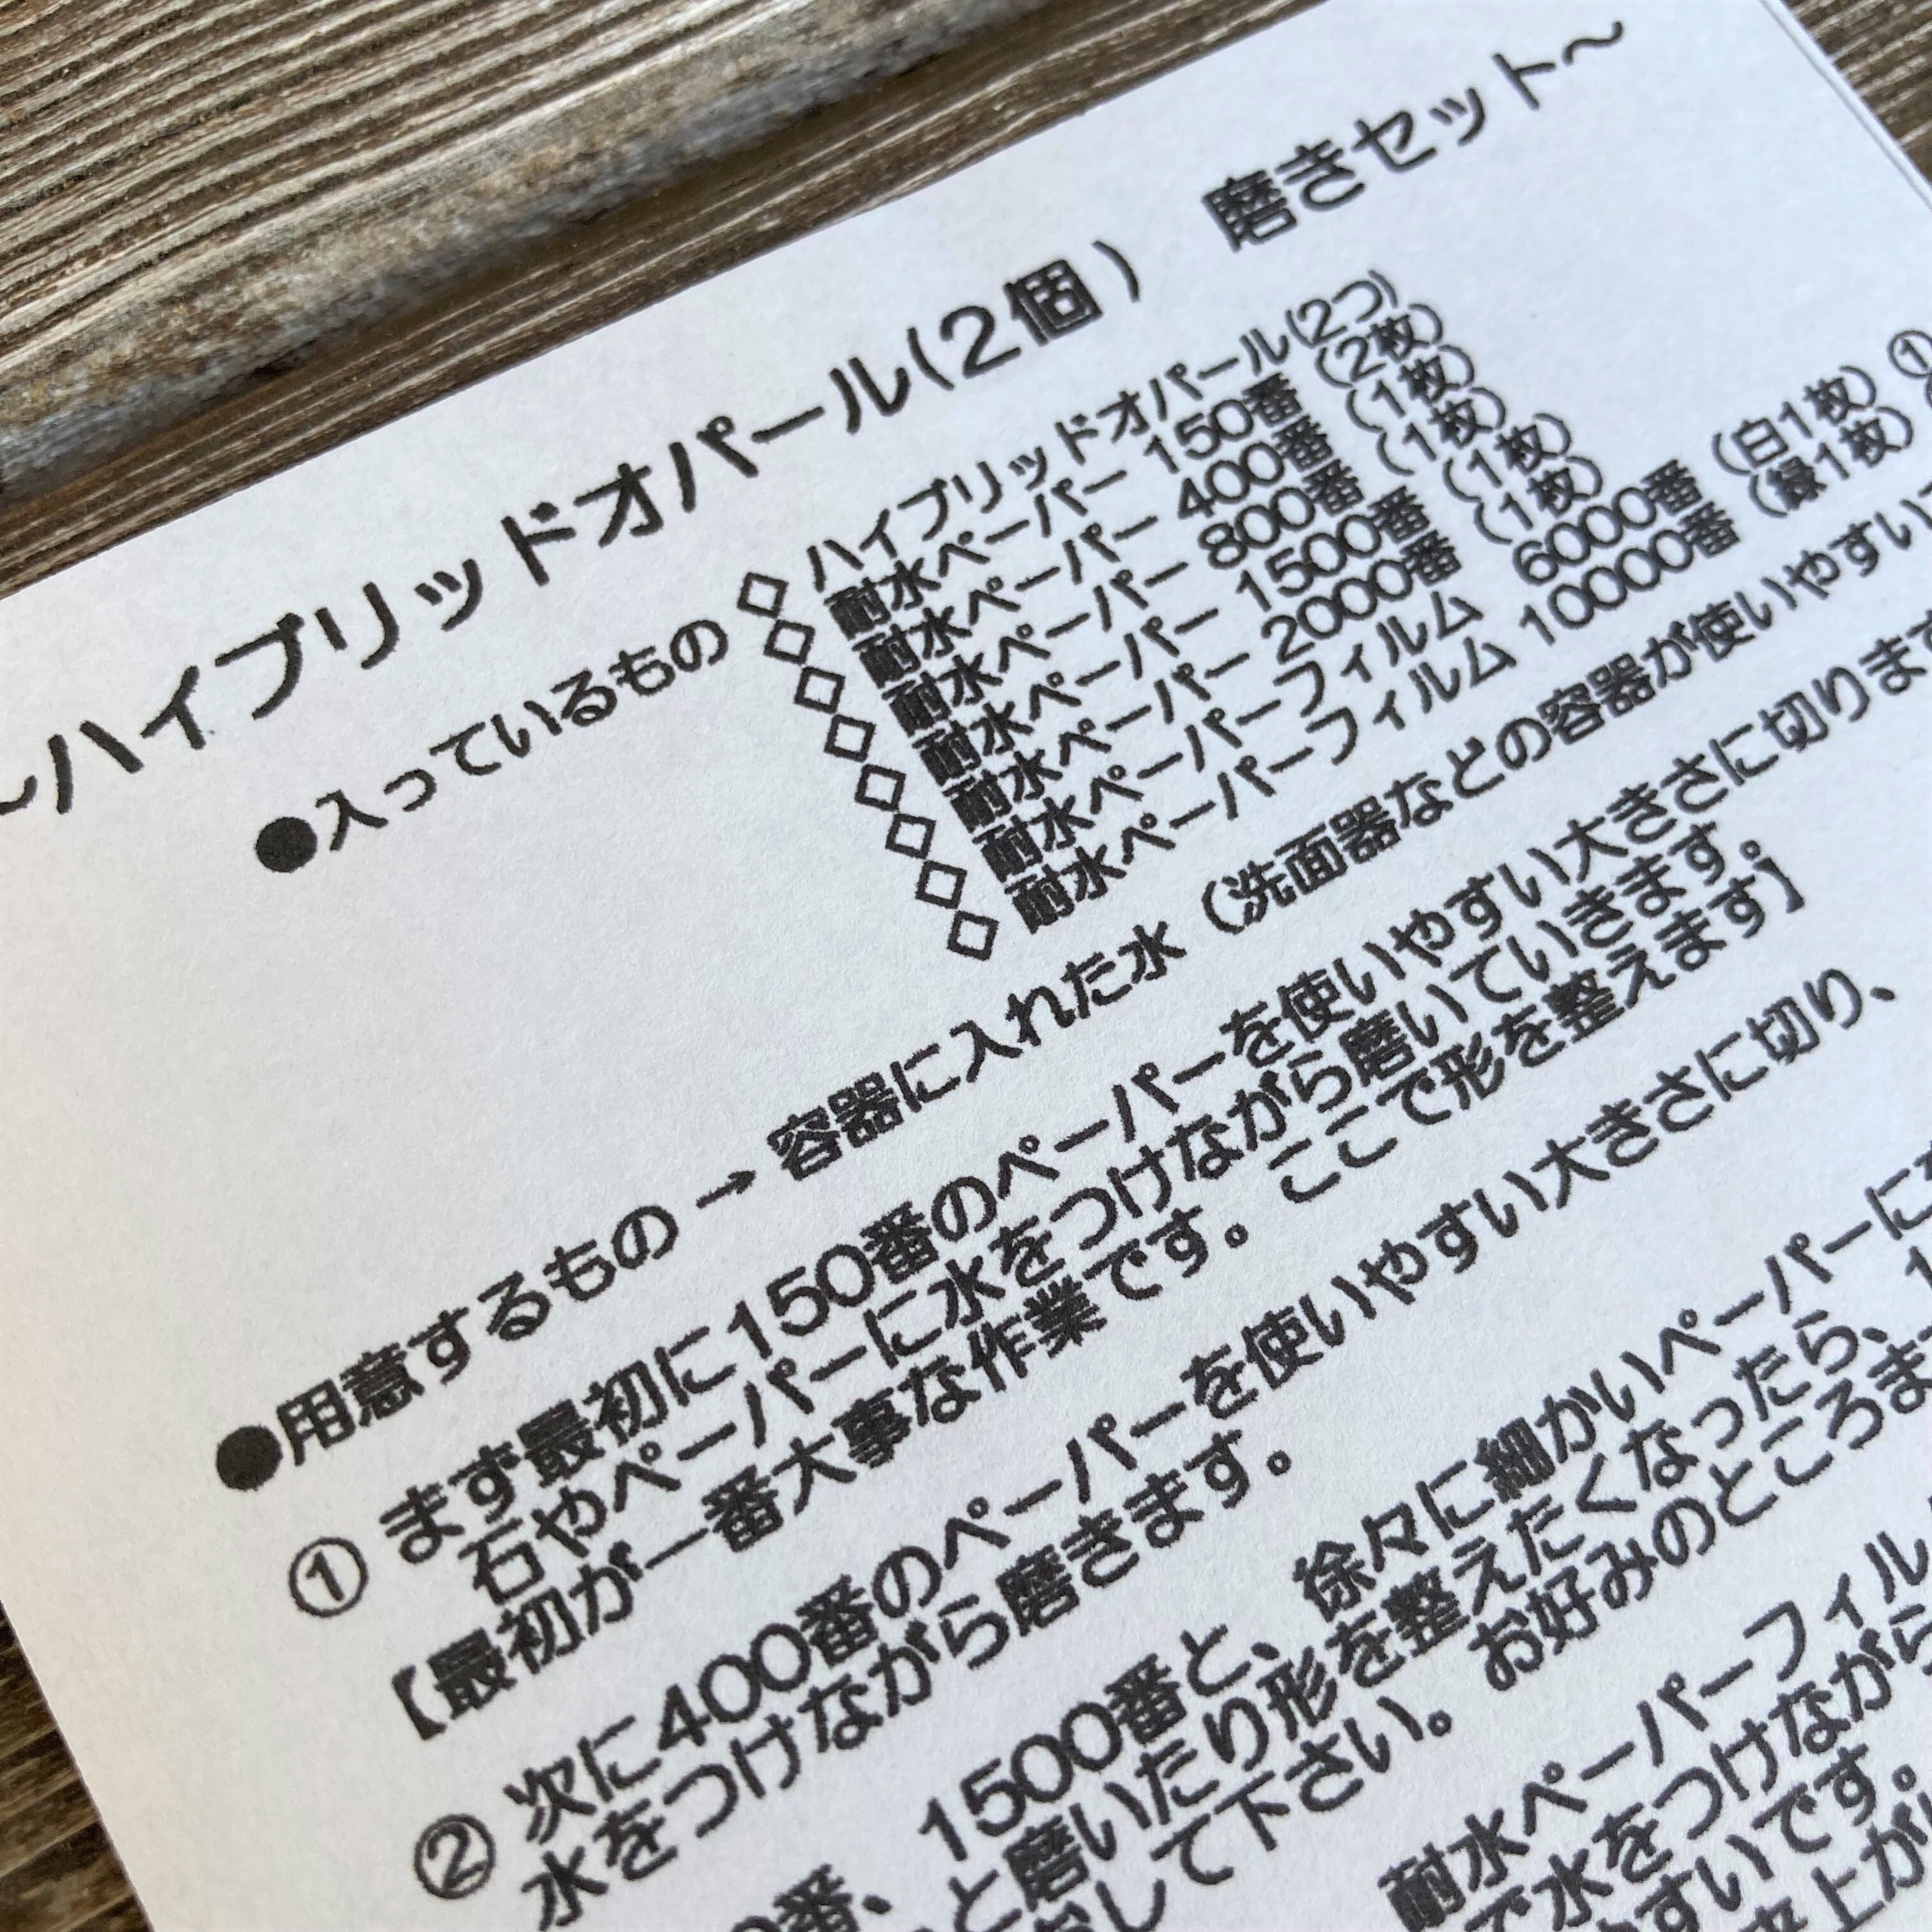 ～ハイブリッドオパール(2個) 磨きセット～
●入っているもの ◇ ハイブリッドオパール(2つ)
◇ 耐水ペーパー 150番 (2枚)
◇ 耐水ペーパー 400番 (1枚)
◇ 耐水ペーパー 800番 (1枚)
◇ 耐水ペーパー 1500番 (1枚)
◇ 耐水ペーパー 2000番 (1枚)
◇ 耐水ペーパーフィルム 6000番 (白1枚) ①
◇ 耐水ペーパーフィルム 10000番 (緑1枚)
●用意するもの → 容器に入れた水 (洗面器などの容器が使いやすい
① まず最初に150番のペーパーを使いやすい大きさに切ります
石やペーパーに水をつけながら磨いていきます。
【最初が一番大事な作業です。ここで形を整えます】
② 次に400番のペーパーを使いやすい大きさに切り、
水をつけながら磨きます。
番、1500番と、徐々に細かいペーパーに
と磨いたり形を整えたくなったら、
して下さい。お好みのところま
耐水ペーパーフィル
で水をつけながら
やすいです。
上が